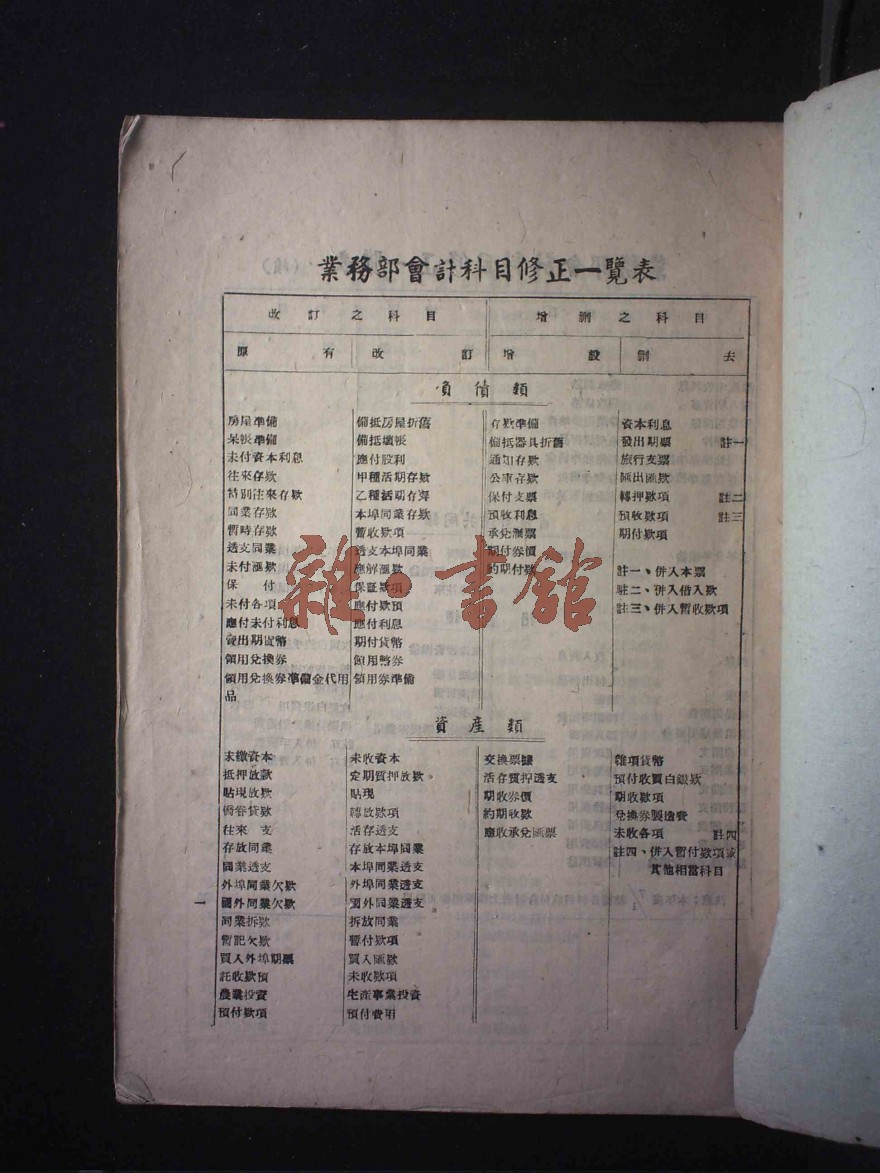 業務部會計科目修正一覽表
改訂之科目 增刪之科目
原有 改訂 增設 刪去
負債類
房屋準備 備抵房屋折舊 存款準備 資本利息
呆帳準備 備抵壞帳 備抵器具折舊 發出期票 註一
未付資本利息 應付股利 通知存款 旅行支票
往來存款 甲種活期存款 公庫存款 匯出匯款
特別往來存款 乙種活期存款 保付支票 轉押款項 註二
同業存款 本埠同業存款 預收利息 預收款項 註三
暫時存款 暫收款項 承兌匯票 期付款項
透支同業 透支本埠同業 期付券價
未付匯款 應解匯款 約期付款 註一、併入本票
保付 保証款項 註二、併入借入款
未付各項 應付款項 註三、併入暫收款項
應付未付利息 應付利息
賣出期貨幣 期付貨幣
領用兌換券 領用幣券
領用兌換券準備金代用品 領用券準備
資產類
未繳資本 未收資本 交換票據 雜項貨幣
抵押放款 定期質押放款 活存質押透支 預付收買白銀款
貼現放款 貼現 期收券價 期收款項
轉放款項 約期收款 兌換券製造費
往來 支 活存透支 應收承兌匯票 未收各項 註四
存放同業 存放本埠同業 註四、併入暫付款項或
同業透支 本埠同業透支 其他相當科目
外埠同業欠款 外埠同業透支
國外同業欠款 國外同業透支
同業拆款 拆放同業
暫記欠款 暫付款項
買入外埠期票 買入匯款
託收款項 未收款項
農業投資 生產事業投資
預付款項 預付費用
一
雜·書館